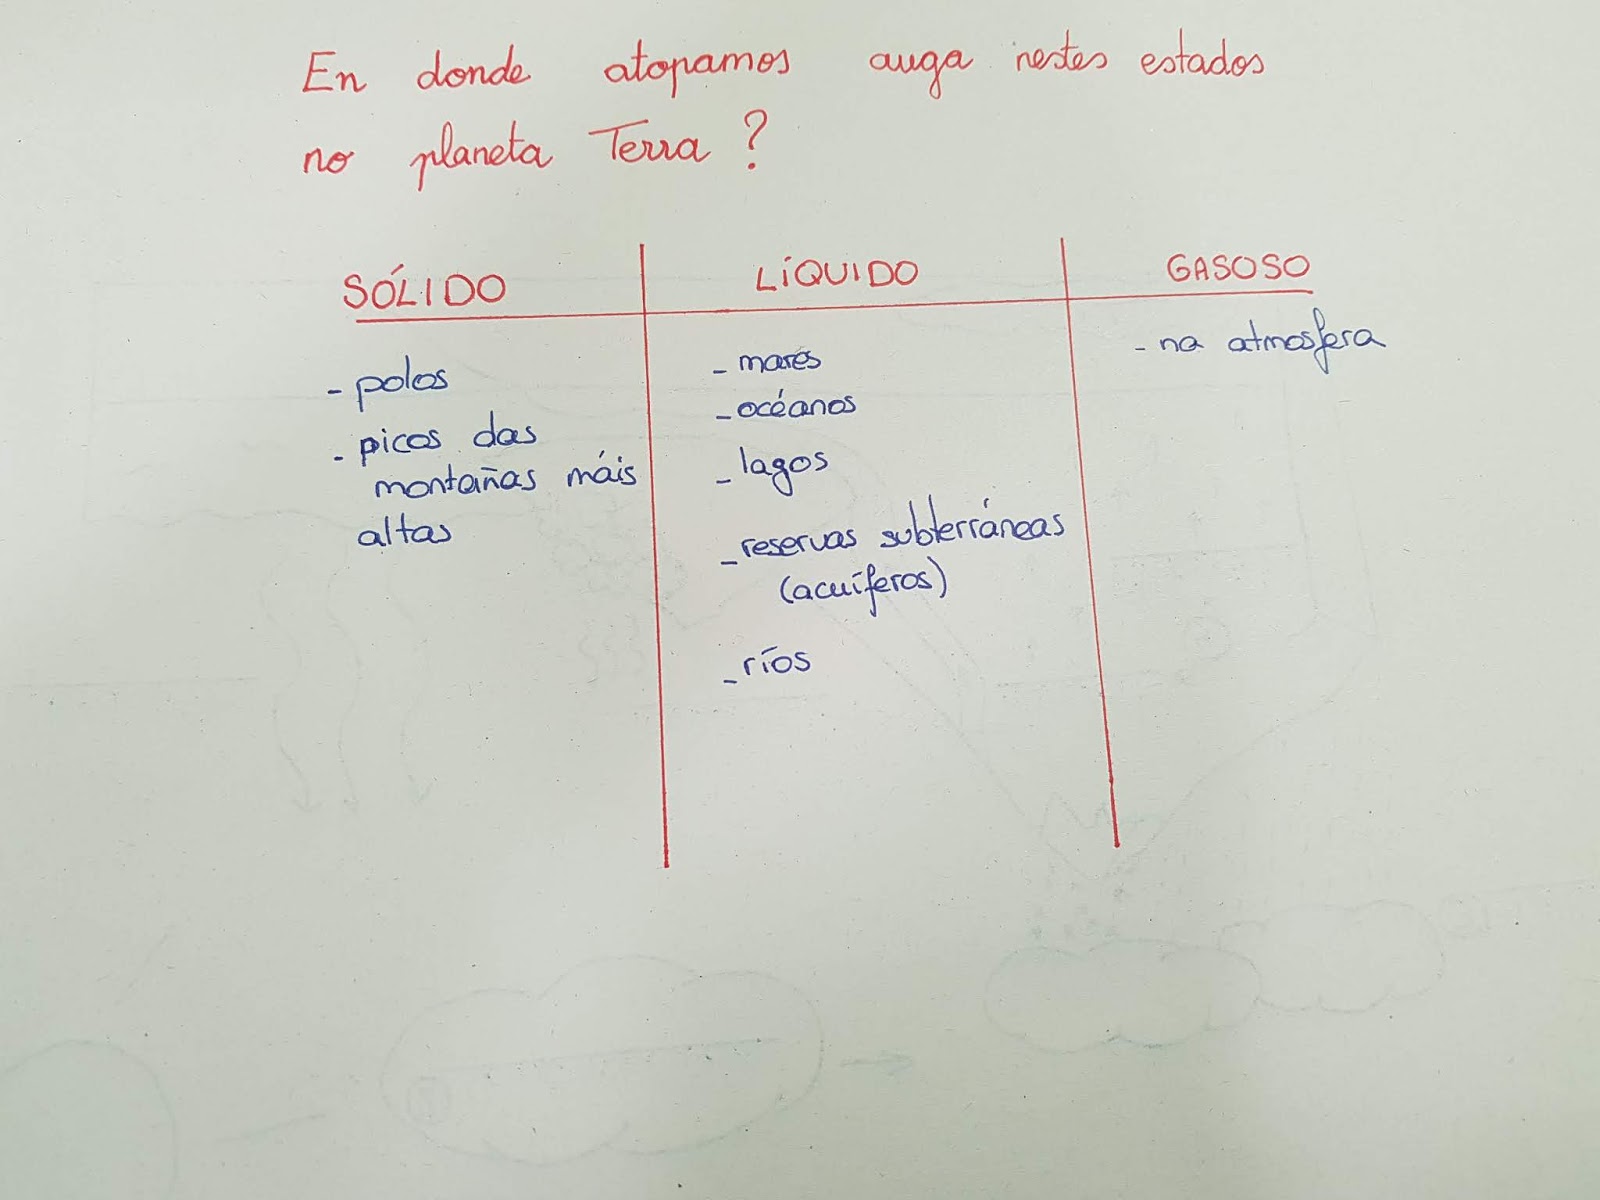 En donde atopamos auga nestes estados
no planeta Terra?
SÓLIDO
- polos
- picos das
montañas máis
altas
LÍQUIDO
- mares
- océanos
- lagos
- reservas subterráneas
(acuíferos)
- ríos
GASOSO
- na atmosfera